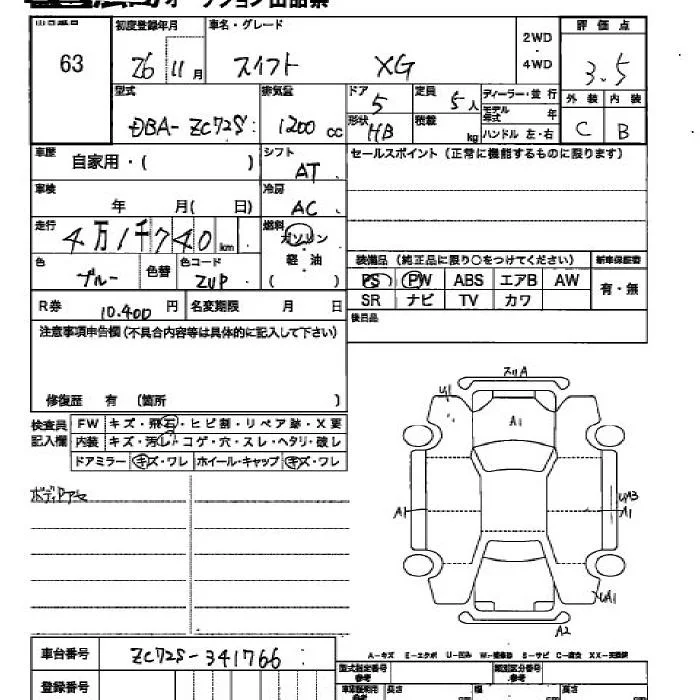 オークション出品票
出品番号 初度登録年月 車名・グレード 評価点
63 26 11月 スイフト XG 2WD・4WD 3.5
型式 排気量 ドア 定員 ディーラー・並行 外装 内装
DBA-ZC72S 1200 cc 5 5人 モデル年式 年 C B
形状 HB 積載 kg ハンドル 左・右
車歴 自家用・( ) シフト AT セールスポイント (正常に機能するものに限ります)
車検 年 月( 日) 冷房 AC
走行 4万1千740 km 燃料 ガソリン 軽油 ( )
色 ブルー 色替 色コード ZUP
装備品 (純正品に限り○をつけてください) 新車保証書
PS PW ABS エアB AW 有・無
SR ナビ TV カワ
R券 10.400円 名変期限 月 日 後日品
注意事項申告欄(不具合内容等は具体的に記入して下さい)
修復歴 有 (箇所 )
検査員記入欄 FW キズ・飛石・ヒビ割・リペア跡・X要
内装 キズ・汚レ・コゲ・穴・スレ・ヘタリ・破レ
ドアミラー キズ・ワレ ホイール・キャップ キズ・ワレ
スリA
U1
A1
A1
UA3
A1
UA1
A2
車台番号 ZC72S-341766
A-キズ E-エクボ U-凹み W-補修跡 S-サビ C-腐食 XX-交換済
型式指定番号 参考 類別区分番号 参考
登録番号 長さ cm 幅 cm 高さ